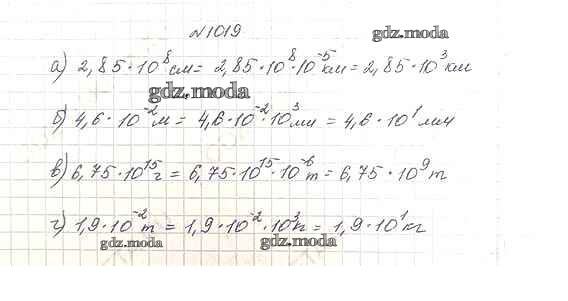 №1019
gdz.moda
а) 2,85·10⁸ см = 2,85·10⁸·10⁻⁵ км = 2,85·10³ км
gdz.moda
б) 4,6·10⁻² м = 4,6·10⁻²·10³ мм = 4,6·10¹ мм
в) 6,75·10¹⁵ г = 6,75·10¹⁵·10⁻⁶ т = 6,75·10⁹ т
г) 1,9·10⁻² т = 1,9·10⁻²·10³ кг = 1,9·10¹ кг
gdz.moda
gdz.moda